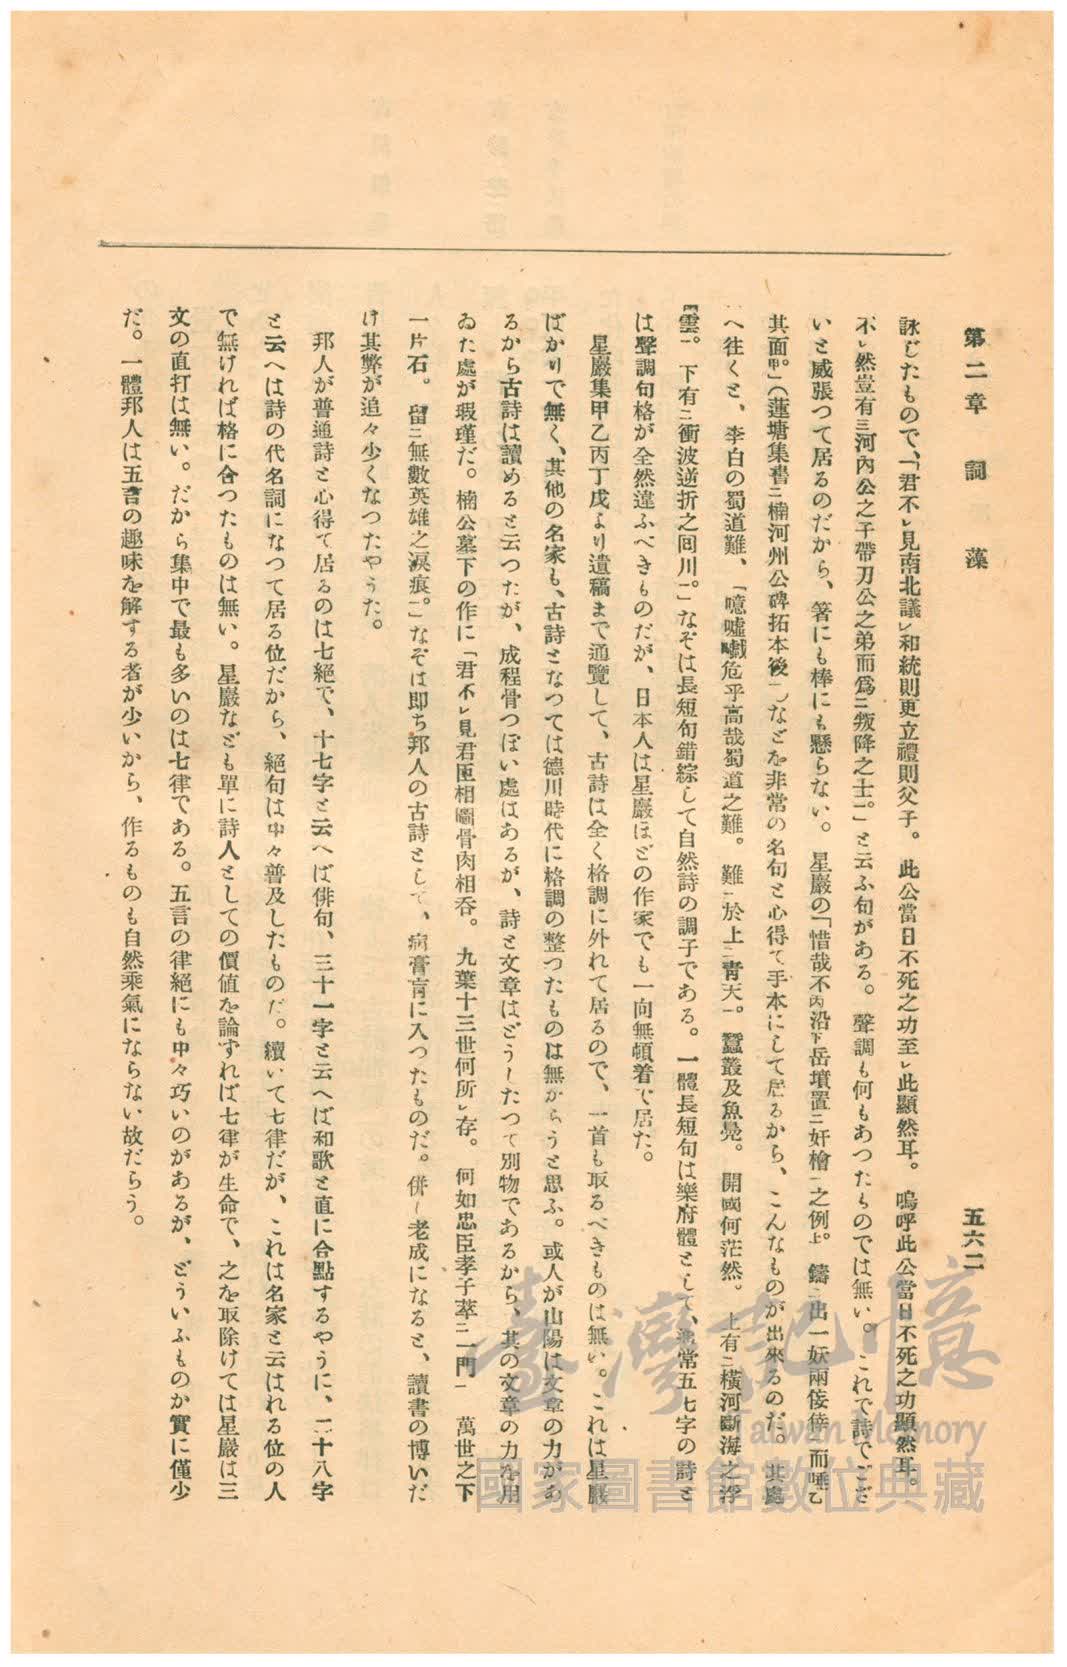 第二章　詞藻
五六二
詠じたもので、「君不レ見南北議レ和統則更立禮則父子。此公當日不死之功至レ此顯然耳。嗚呼此公當日不死之功顯然耳。
不レ然豈有三河內公之子帶刀公之弟而爲二叛降之士一」と云ふ句がある。聲調も何もあつたものでは無い。これで詩でござ
いと威張つて居るのだから、箸にも棒にも懸らない。星巖の「惜哉不丙沿下岳墳置二奸檜一之例上。鑄二出一妖兩倭倖一而唾乙
其面甲」（蓮塘集書二楠河州公碑拓本後一）などを非常の名句と心得て手本にして居るから、こんなものが出來るのだ。其處
へ往くと、李白の蜀道難、「噫嘘嚱危乎高哉蜀道之難。難二於上二青天一。蠶叢及魚鳧。開國何茫然。上有二橫河斷海之浮
雲一。下有三衝波逆折之囘川一。」なぞは長短句錯綜して自然詩の調子である。一體長短句は樂府體として、通常五七字の詩と
は聲調句格が全然違ふべきものだが、日本人は星巖ほどの作家でも一向無頓着で居た。
星巖集甲乙丙丁戊より遺稿まで通覽して、古詩は全く格調に外れて居るので、一首も取るべきものは無い。これは星巖
ばかりで無く、其他の名家も、古詩となつては德川時代に格調の整つたものは無からうと思ふ。或人が山陽は文章の力があ
るから古詩は讀めると云つたが、成程骨つぽい處はあるが、詩と文章はどうしたつて別物であるから、其の文章の力を用
ゐた處が瑕瑾だ。楠公墓下の作に「君不レ見君臣相圖骨肉相吞。九葉十三世何所レ存。何如忠臣孝子萃二一門一　萬世之下
一片石。留二無數英雄之淚痕。」なぞは卽ち邦人の古詩として、病膏肓に入つたものだ。倂し老成になると、讀書の博いだ
け其弊が追々少くなつたやうた。
邦人が普通詩と心得て居るのは七絕で、十七字と云へば俳句、三十一字と云へば和歌と直に合點するやうに、二十八字
と云へは詩の代名詞になつて居る位だから、絕句は中々普及したものだ。續いて七律だが、これは名家と云はれる位の人
で無ければ格に合つたものは無い。星巖なども單に詩人としての價値を論ずれば七律が生命で、之を取除けては星巖は三
文の直打は無い。だから集中で最も多いのは七律である。五言の律絕にも中々巧いのがあるが、どういふものか實に僅少
だ。一體邦人は五言の趣味を解する者が少いから、作るものも自然乘氣にならない故だらう。
臺灣記憶
Taiwan Memory
國家圖書館數位典藏